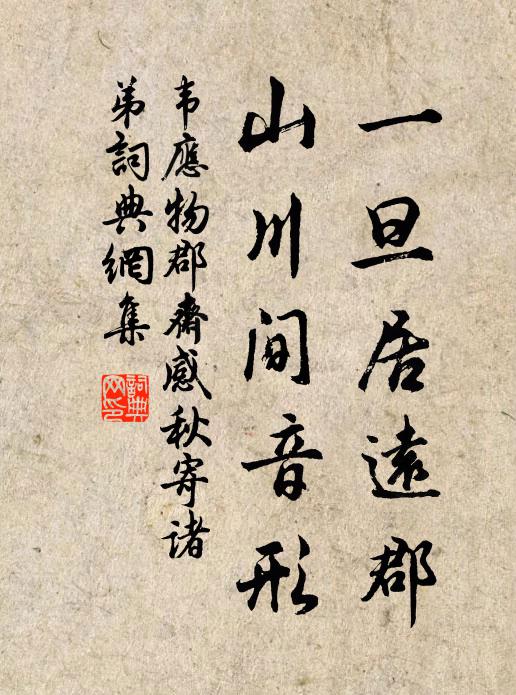 一旦居遠郡
山川间音形
韦應物郡齋感秋寄诸
弟詞典網集
詞典网印